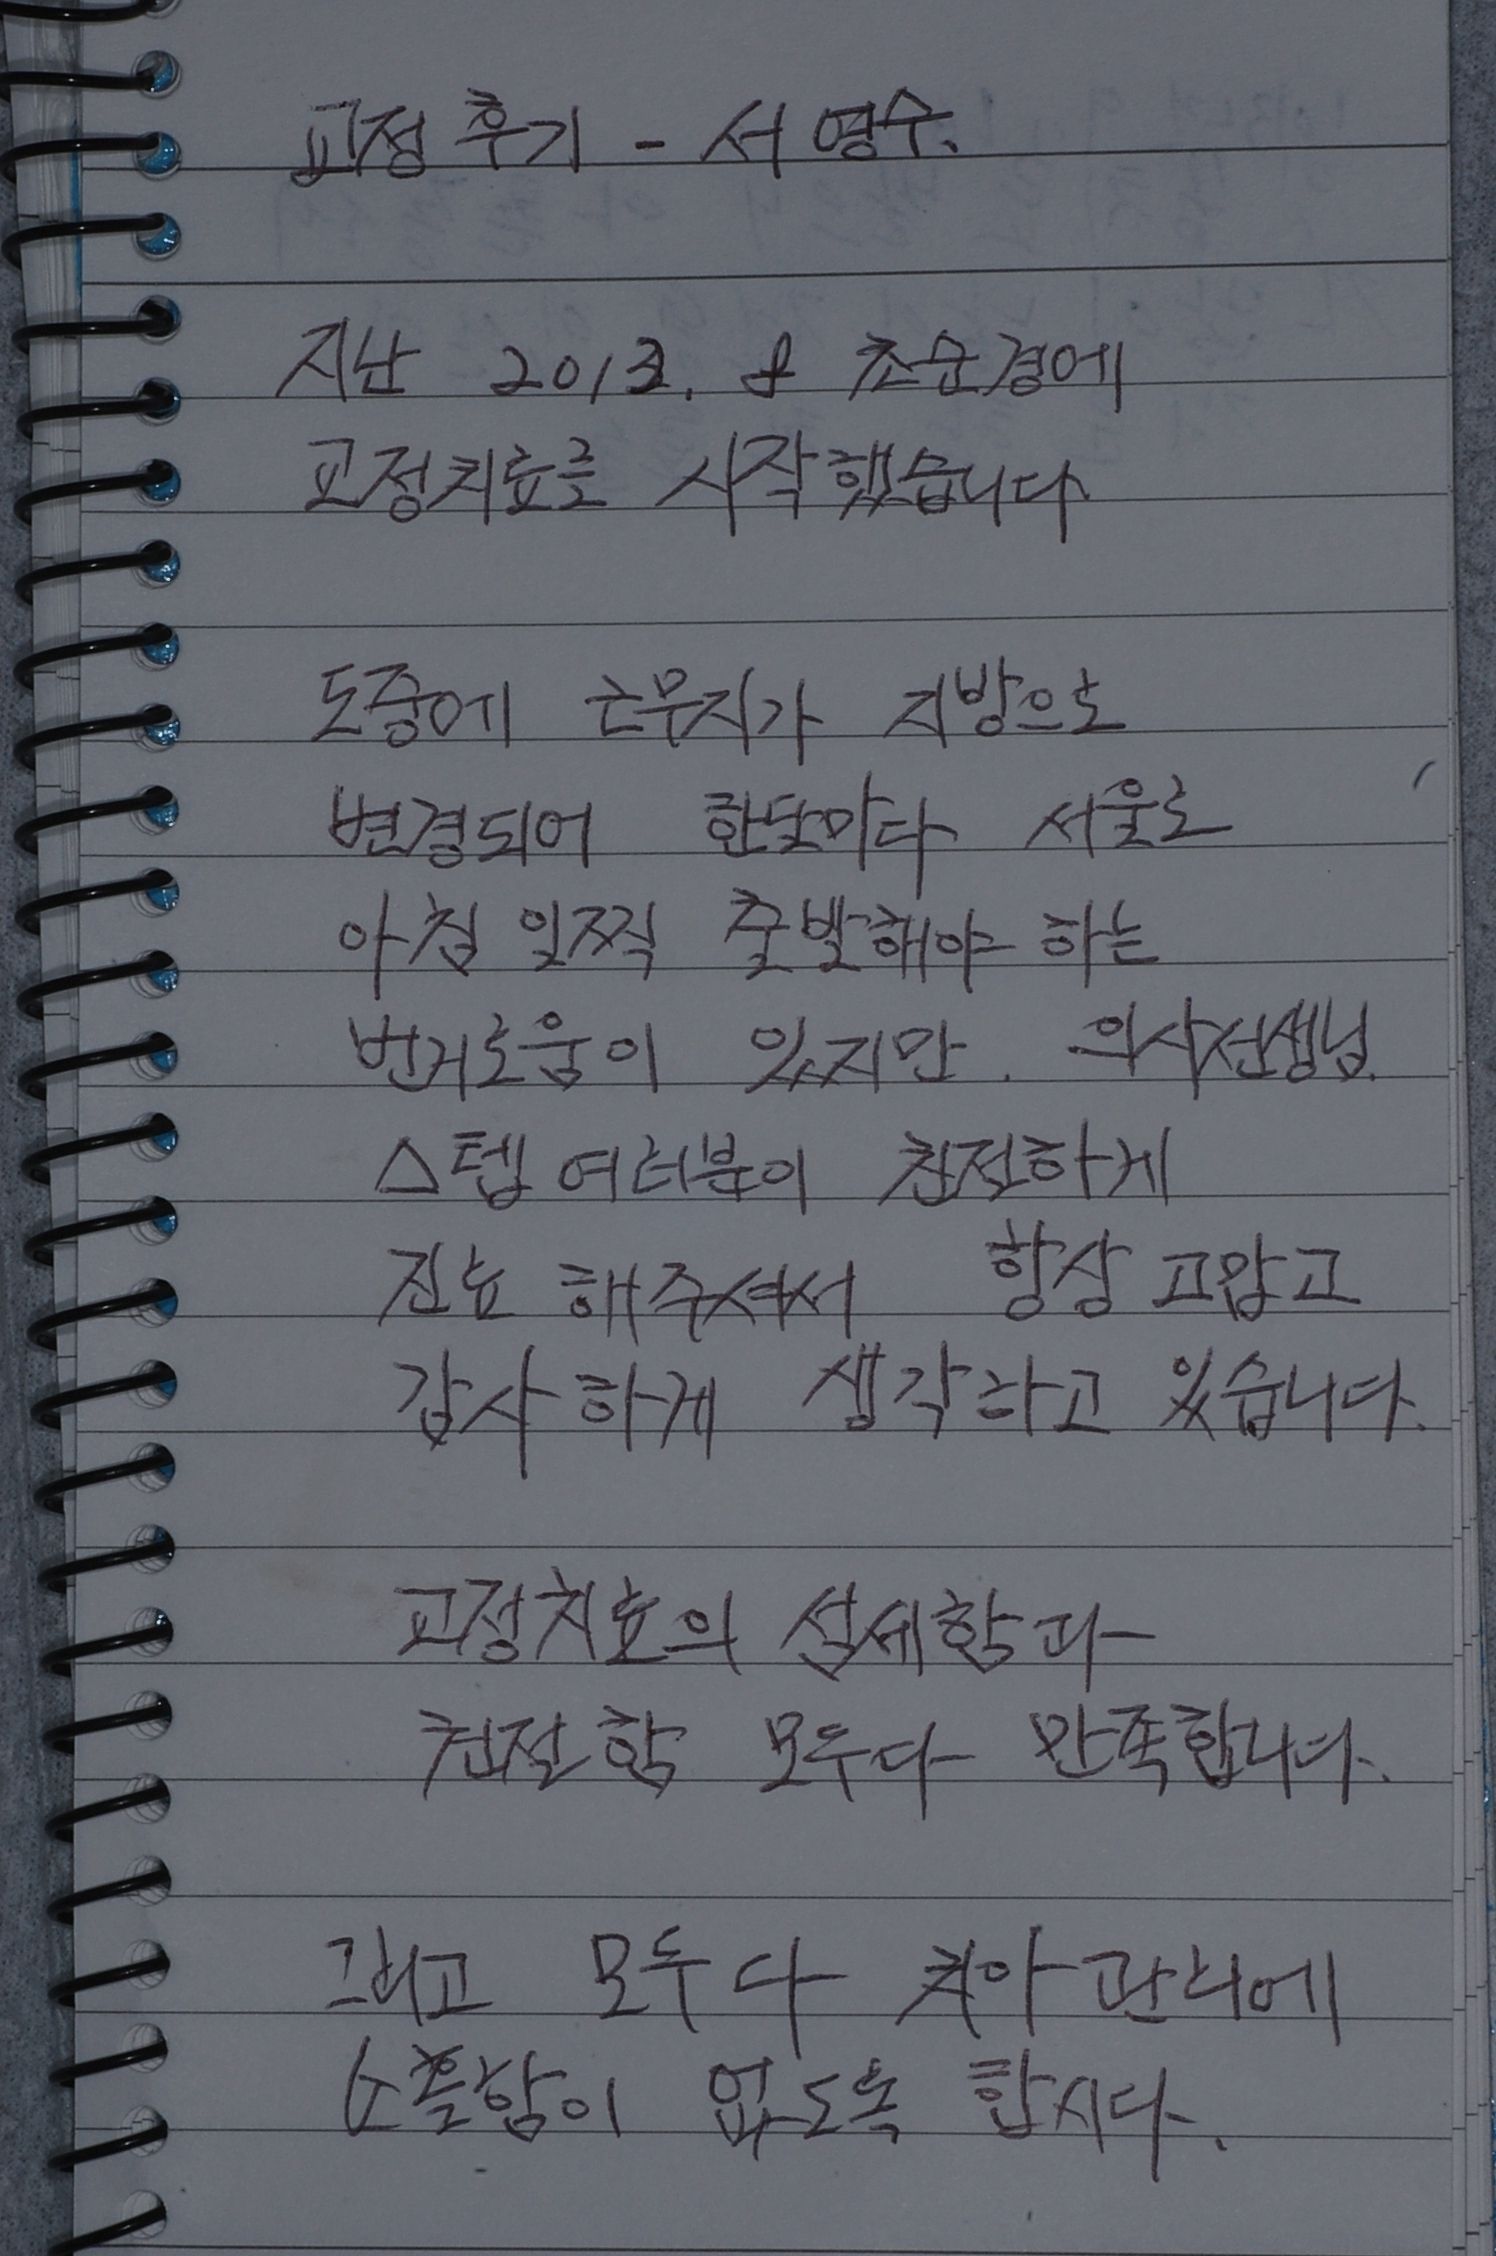 교정 후기 - 서영수.
지난 2013. 8 초순경에
교정치료를 시작했습니다
도중에 근무지가 지방으로
변경되어 한달마다 서울로
아침 일찍 출발해야 하는
번거로움이 있지만. 의사선생님.
스텝 여러분이 친절하게
진료 해주셔서 항상 고맙고
감사하게 생각하고 있습니다.
교정치료의 섬세함과
친절함 모두다 만족합니다.
그리고 모두다 치아관리에
소홀함이 없도록 합시다.